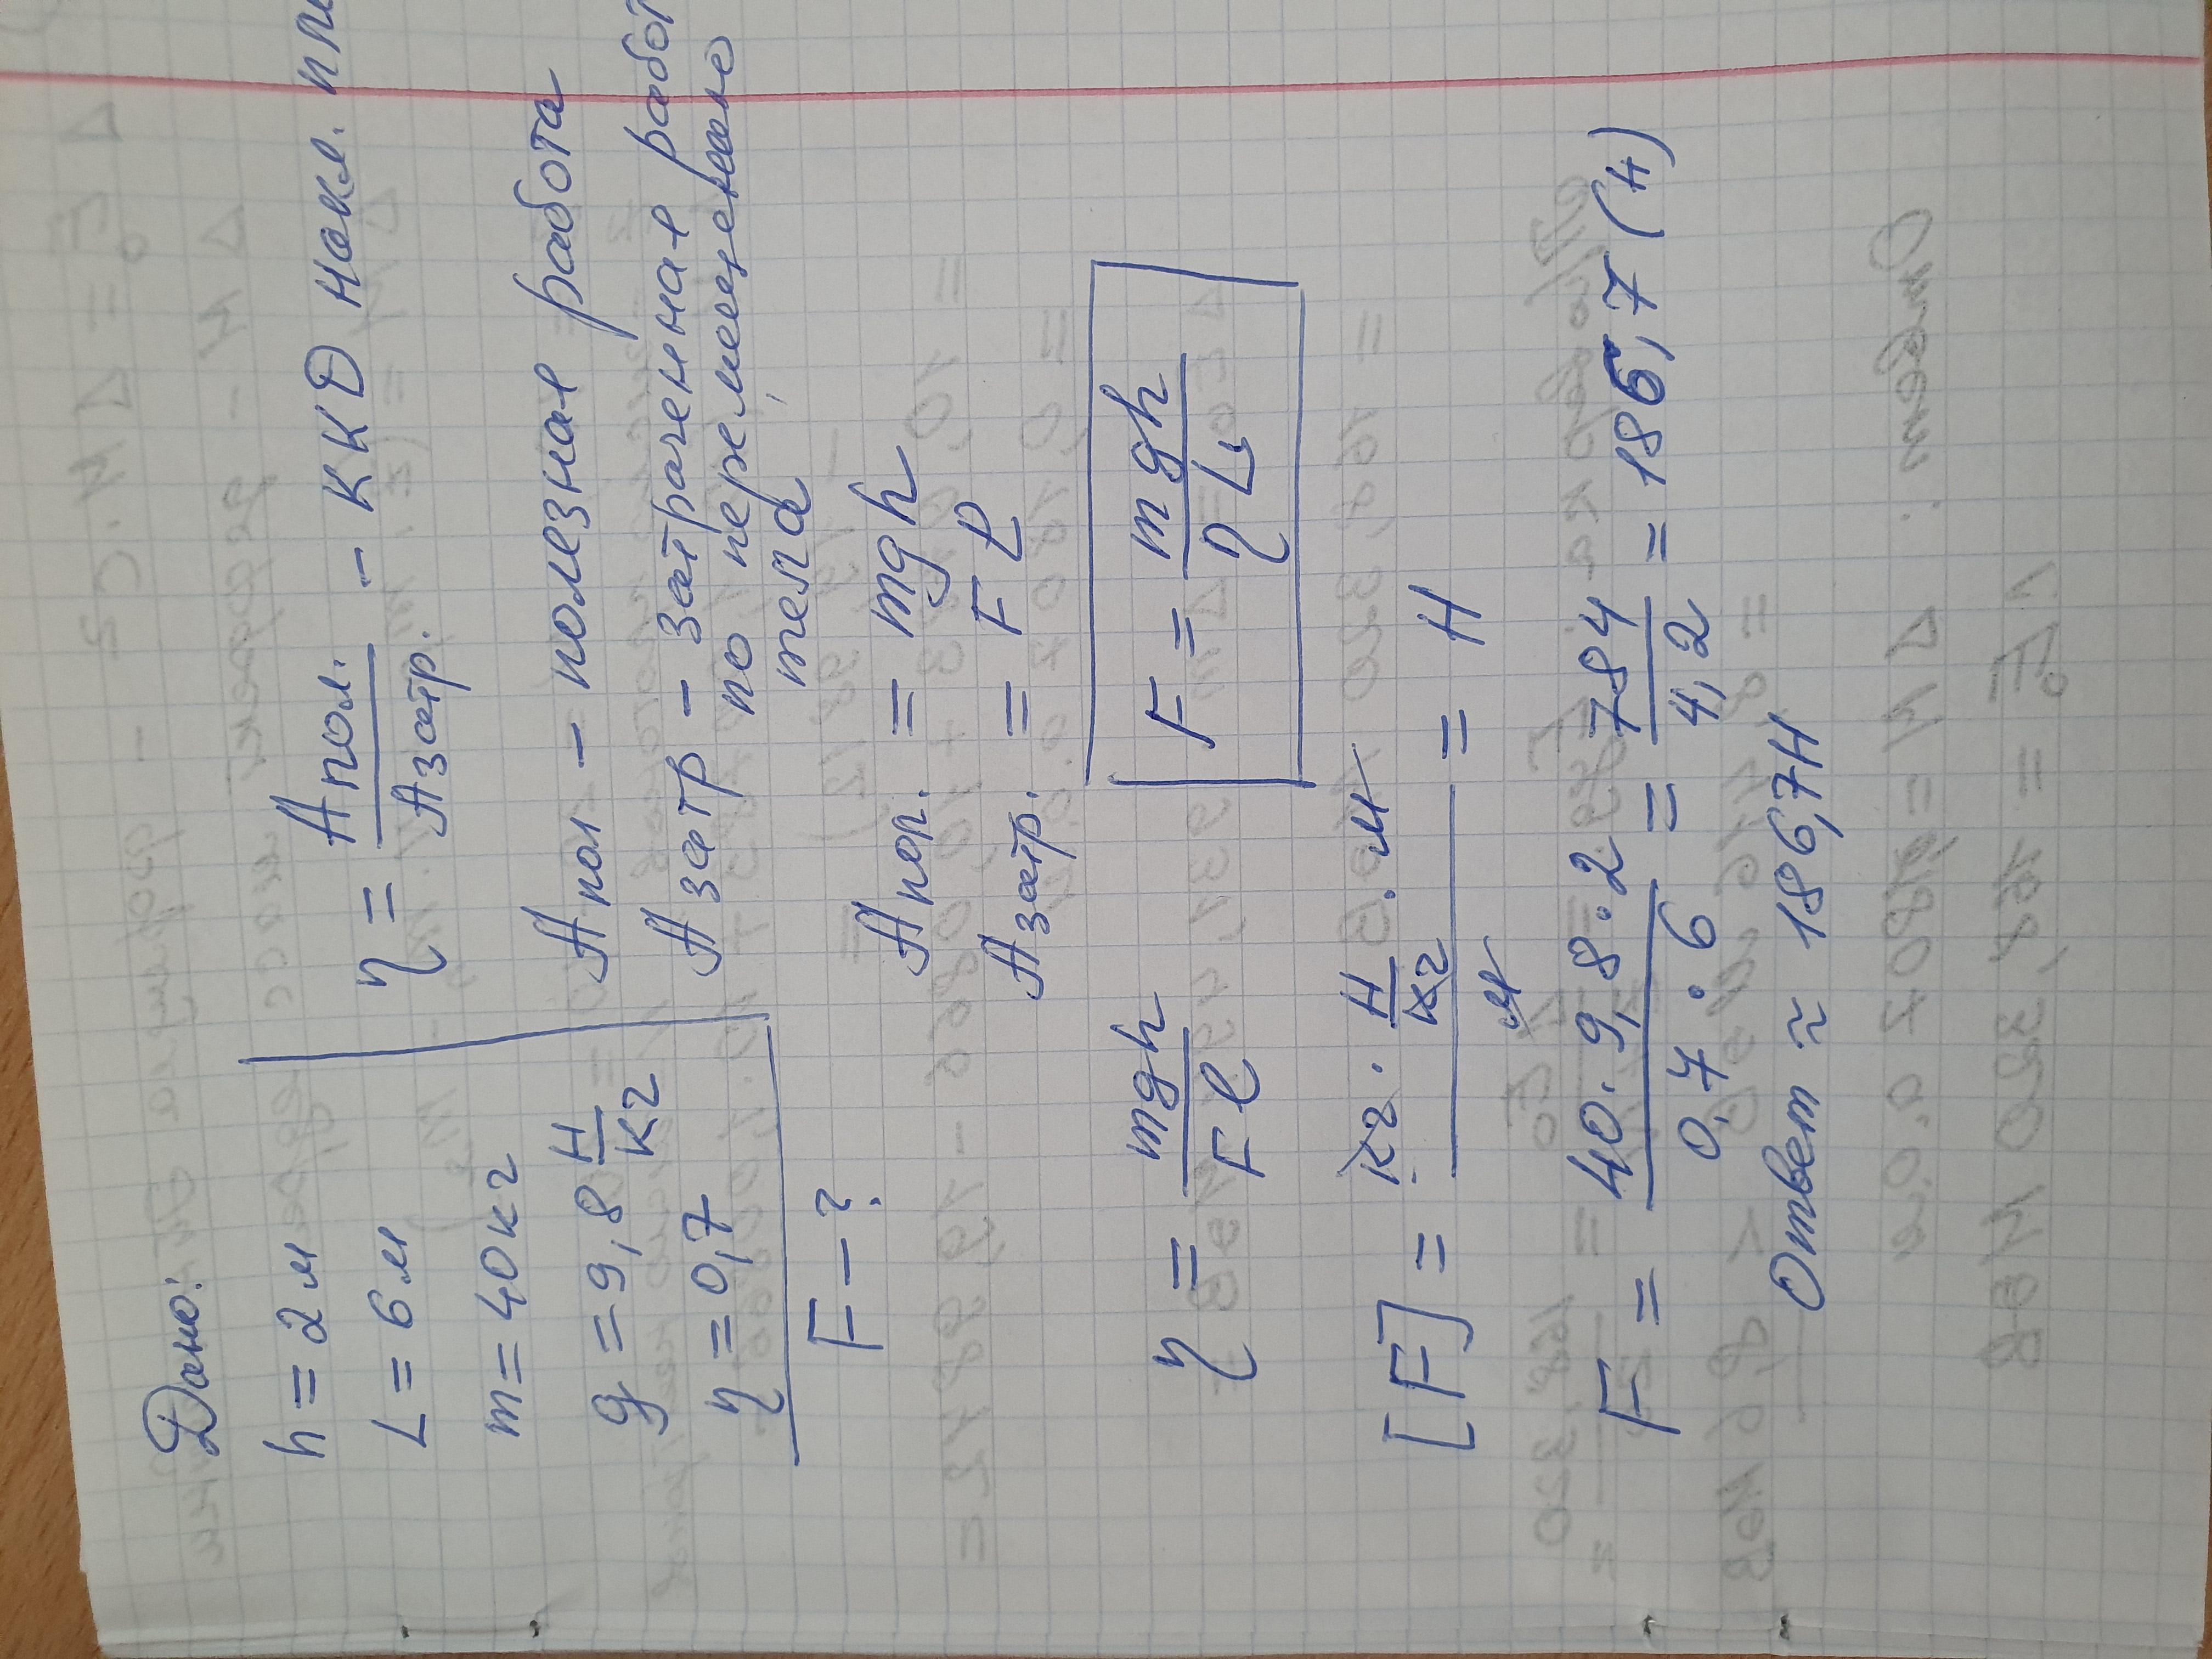 Дано:
h = 2 м
L = 6 м
m = 40 кг
g = 9,8 Н/кг
η = 0,7
F - ?
η = Aпол. / Aзатр. - ККД накл.
Aпол - полезная работа
Aзатр - затраченная работ
по перемещению
тела
Aпол. = mgh
Aзатр. = Fl
η = mgh / Fl
F = mgh / ηL
[F] = кг · Н/кг · м / м = Н
F = 40 · 9,8 · 2 / 0,7 · 6 = 784 / 4,2 = 186,7 (Н)
Ответ ≈ 186,7Н